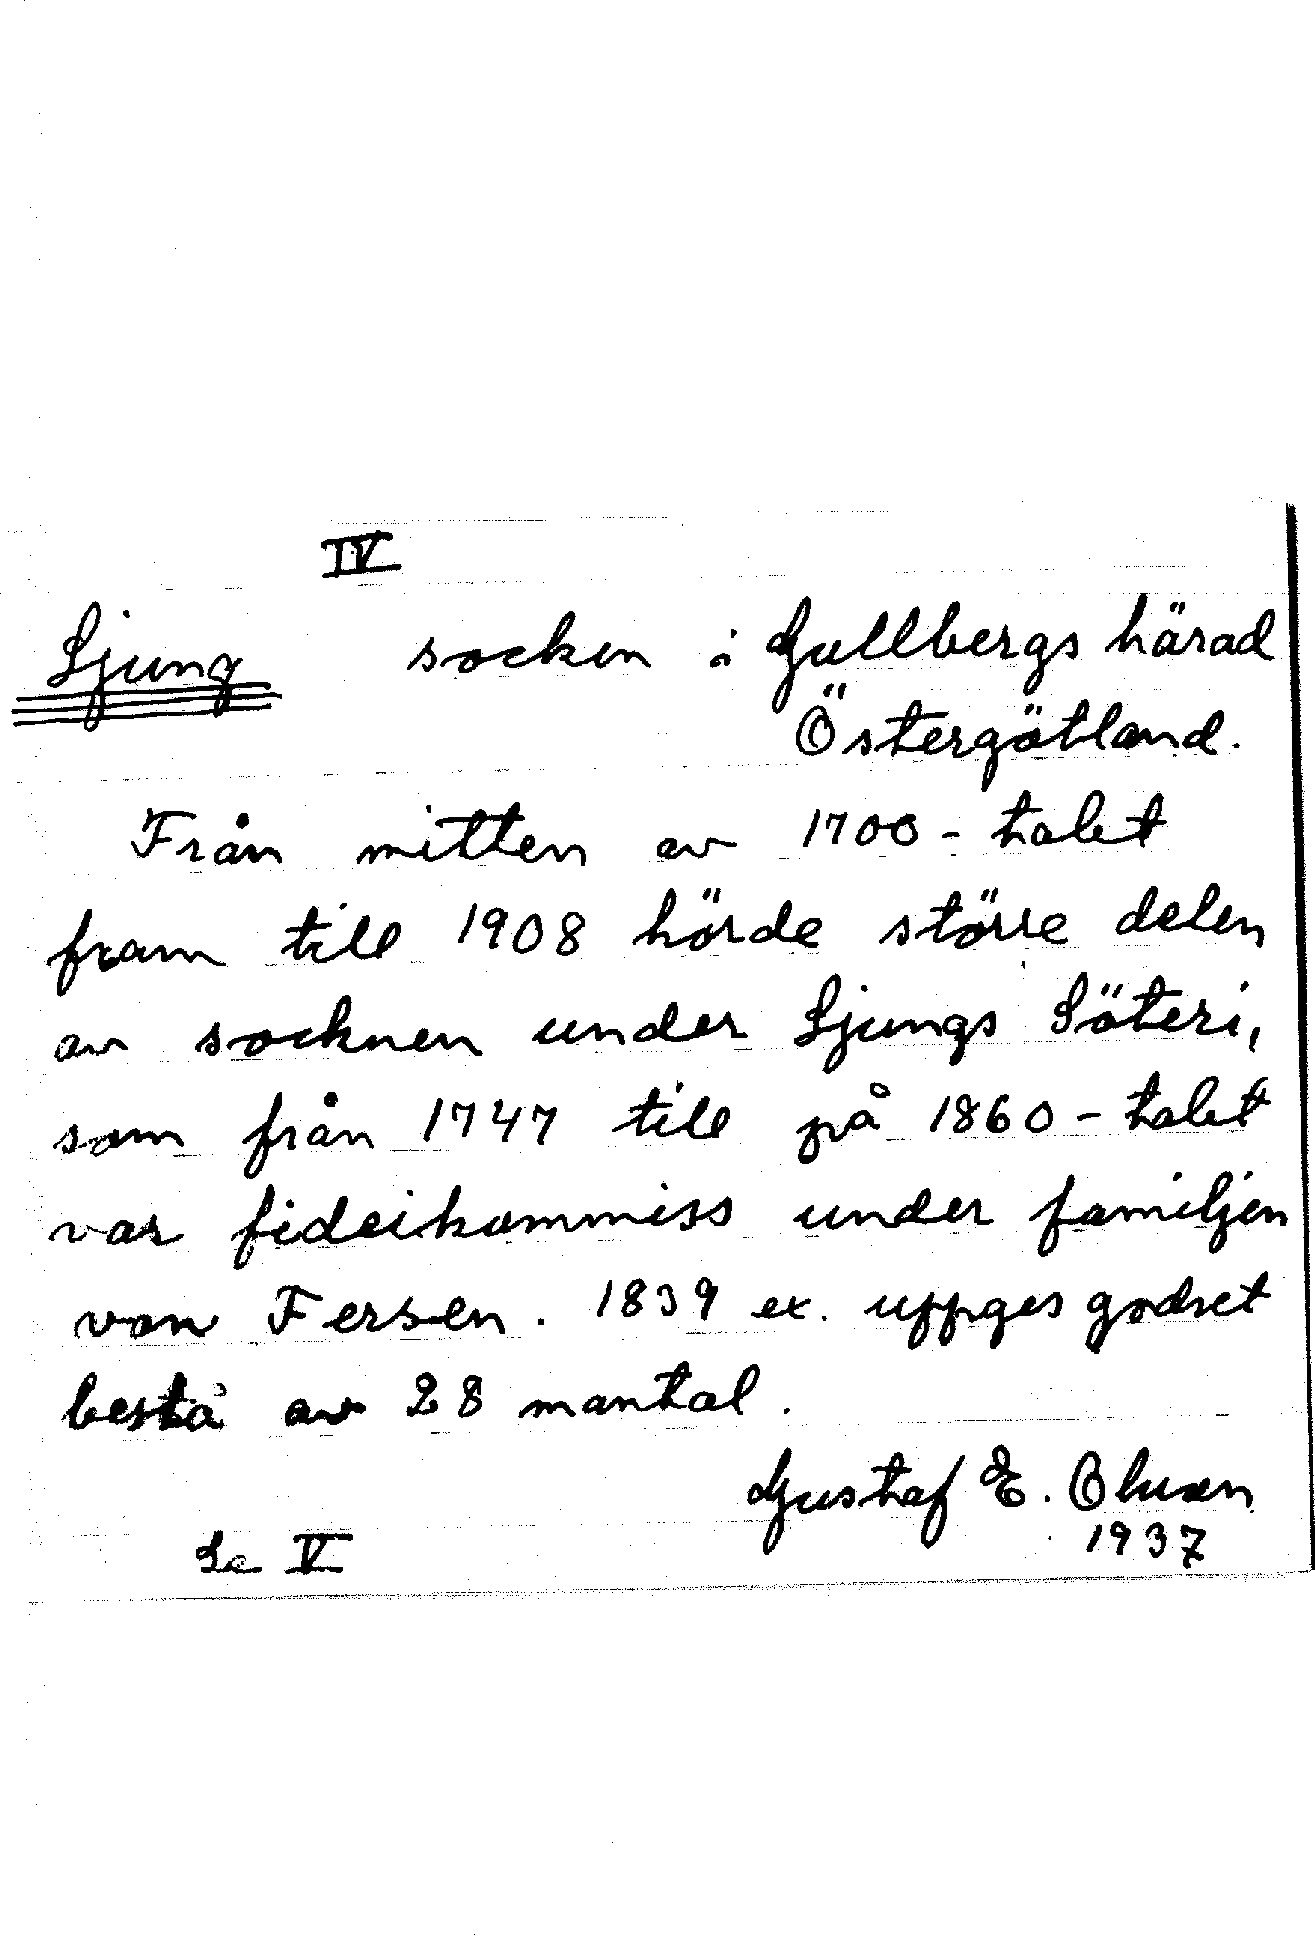 IV
Ljung socken i Gullbergs härad
Östergötland.
Från mitten av 1700-talet
fram till 1908 hörde större delen
av socknen under Ljungs Säteri,
som från 1747 till på 1860-talet
var fideikommiss under familjen
von Fersen. 1839 ex. uppges godset
bestå av 28 mantal.
Gustaf E.
1937
Se V